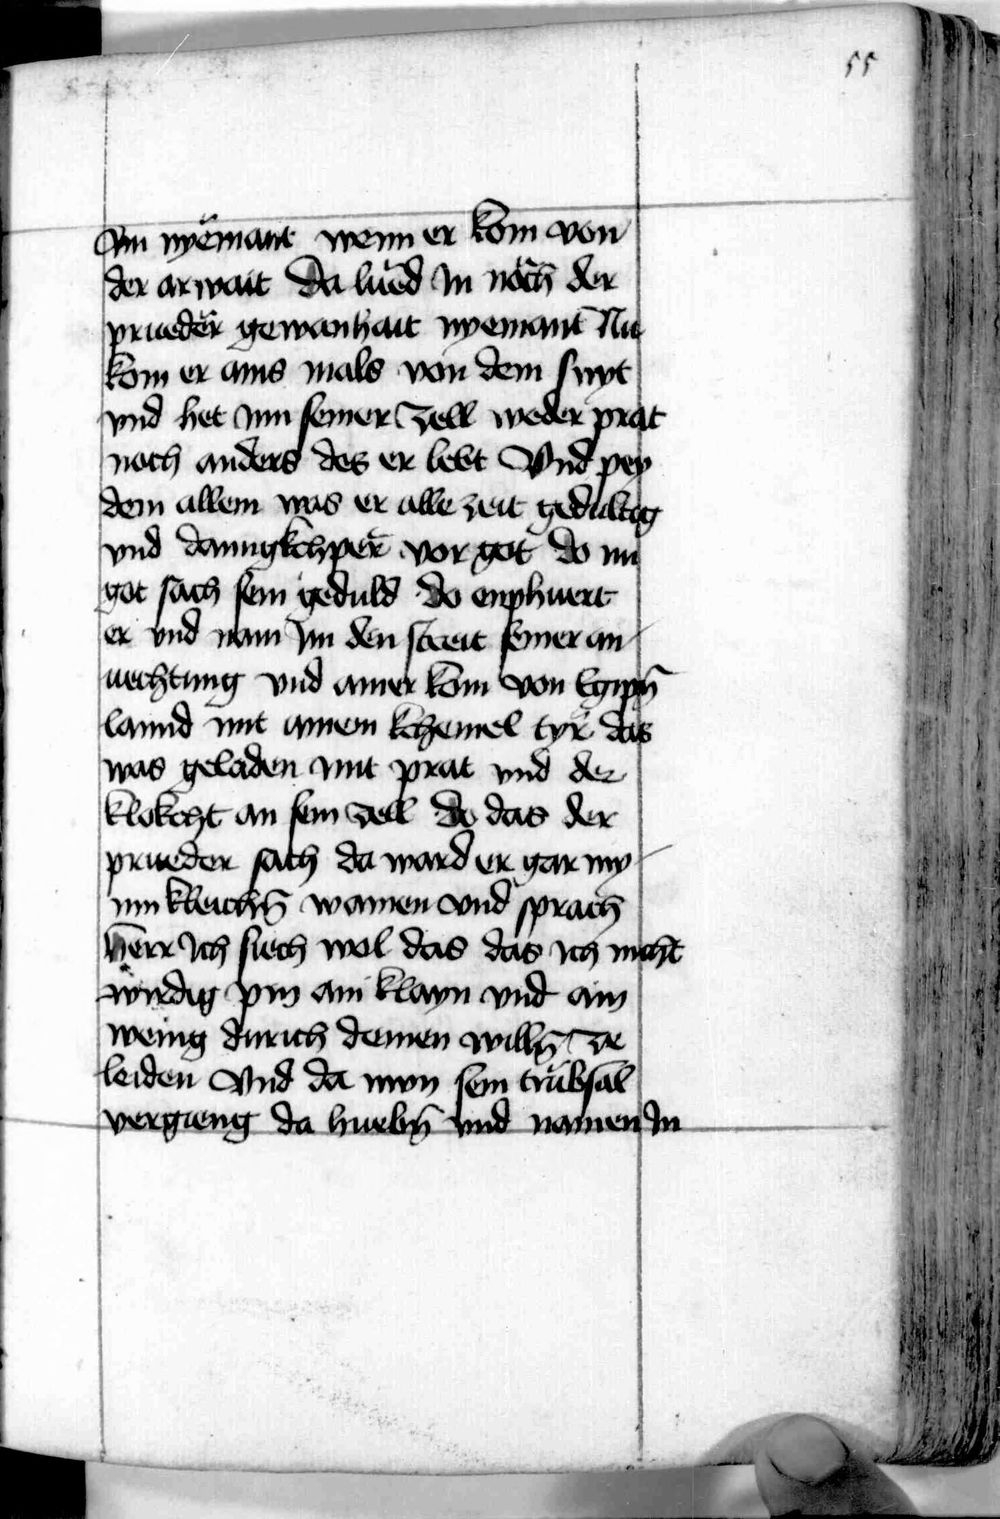 55
Im nyemant wenn er kom von
der arwait Da lued In noch der
prueder gewanhait nyemant Nu
kom er ains mals von dem snyt
vnd het Inn seiner zell weder prat
noch anders des er lebt Vnd pey
dem allem was er alle zeit gedultig
vnd danngkchper vor got do nu
got sach sein geduld do enphuert
er vnd nam Im den streit seiner an-
uechtung vnd ainer kom von Egiptn̄
lannd mit ainem kchemel tyr das
was geladen mit prat vnd der
klokcht an sein zell do das der
prueder sach da ward er gar my-
nnkleichn̄ wainen vnd sprach
Herr Ich siech wol das das ich nicht
wirdig pin ain klayn vnd ain
wenig durich deinen willn̄ ze
leiden Vnd da nun sein truebsal
vergieng da huebn̄ vnd namen In